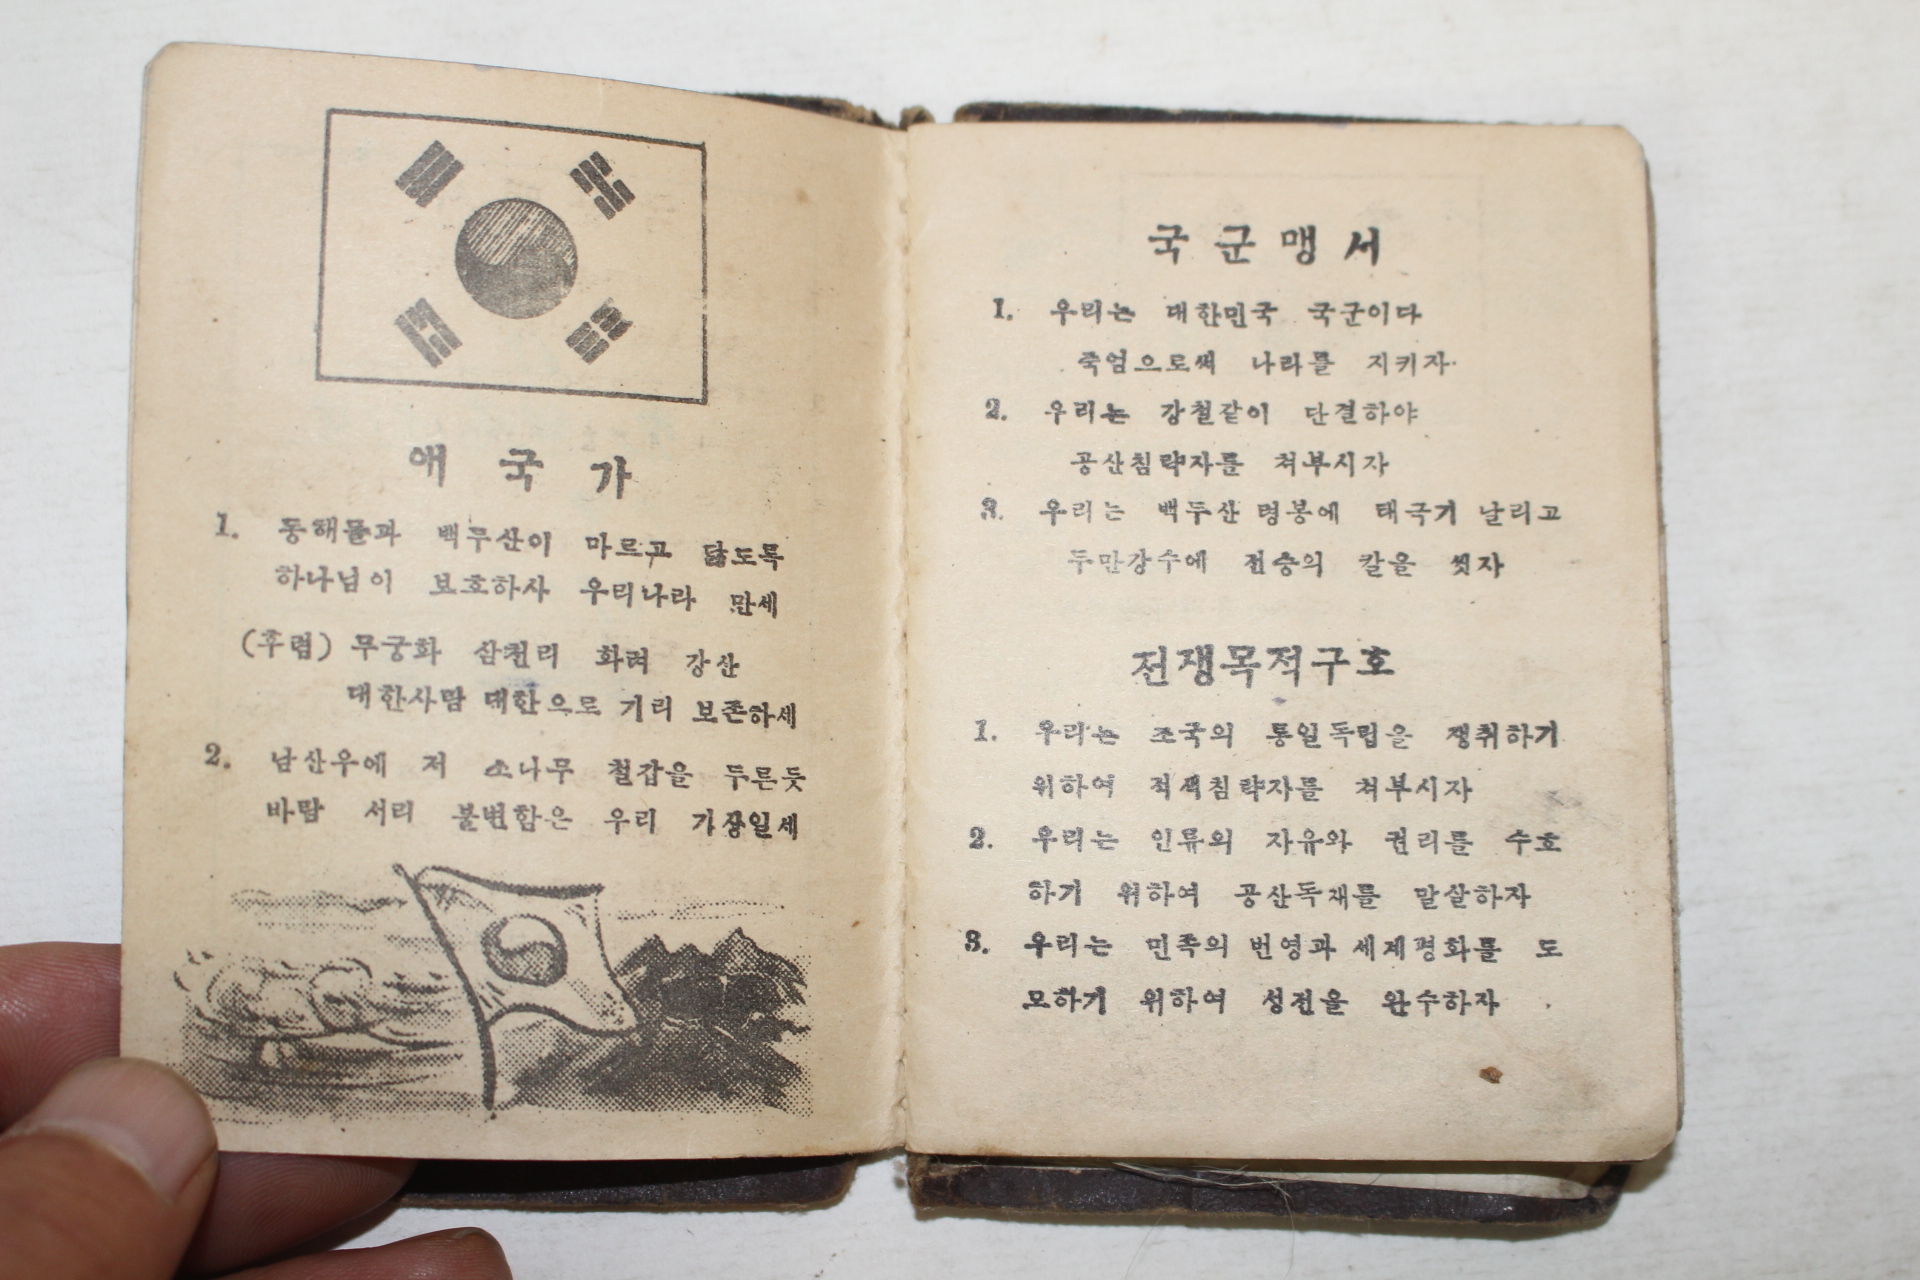 애국가
1. 동해물과 백두산이 마르고 닳도록
하나님이 보호하사 우리나라 만세
(후렴) 무궁화 삼천리 화려 강산
대한사람 대한으로 기리 보존하세
2. 남산우에 저 소나무 철갑을 두른듯
바람 서리 불변함은 우리 기상일세
국군맹서
1. 우리는 대한민국 국군이다
죽엄으로써 나라를 지키자
2. 우리는 강철같이 단결하야
공산침략자를 쳐부시자
3. 우리는 백두산 영봉에 태국기 날리고
두만강수에 전승의 칼을 씻자
전쟁목적구호
1. 우리는 조국의 통일독립을 쟁취하기
위하여 적색침략자를 쳐부시자
2. 우리는 인류의 자유와 권리를 수호
하기 위하여 공산독재를 말살하자
3. 우리는 민족의 번영과 세계평화를 도
모하기 위하여 성전을 완수하자